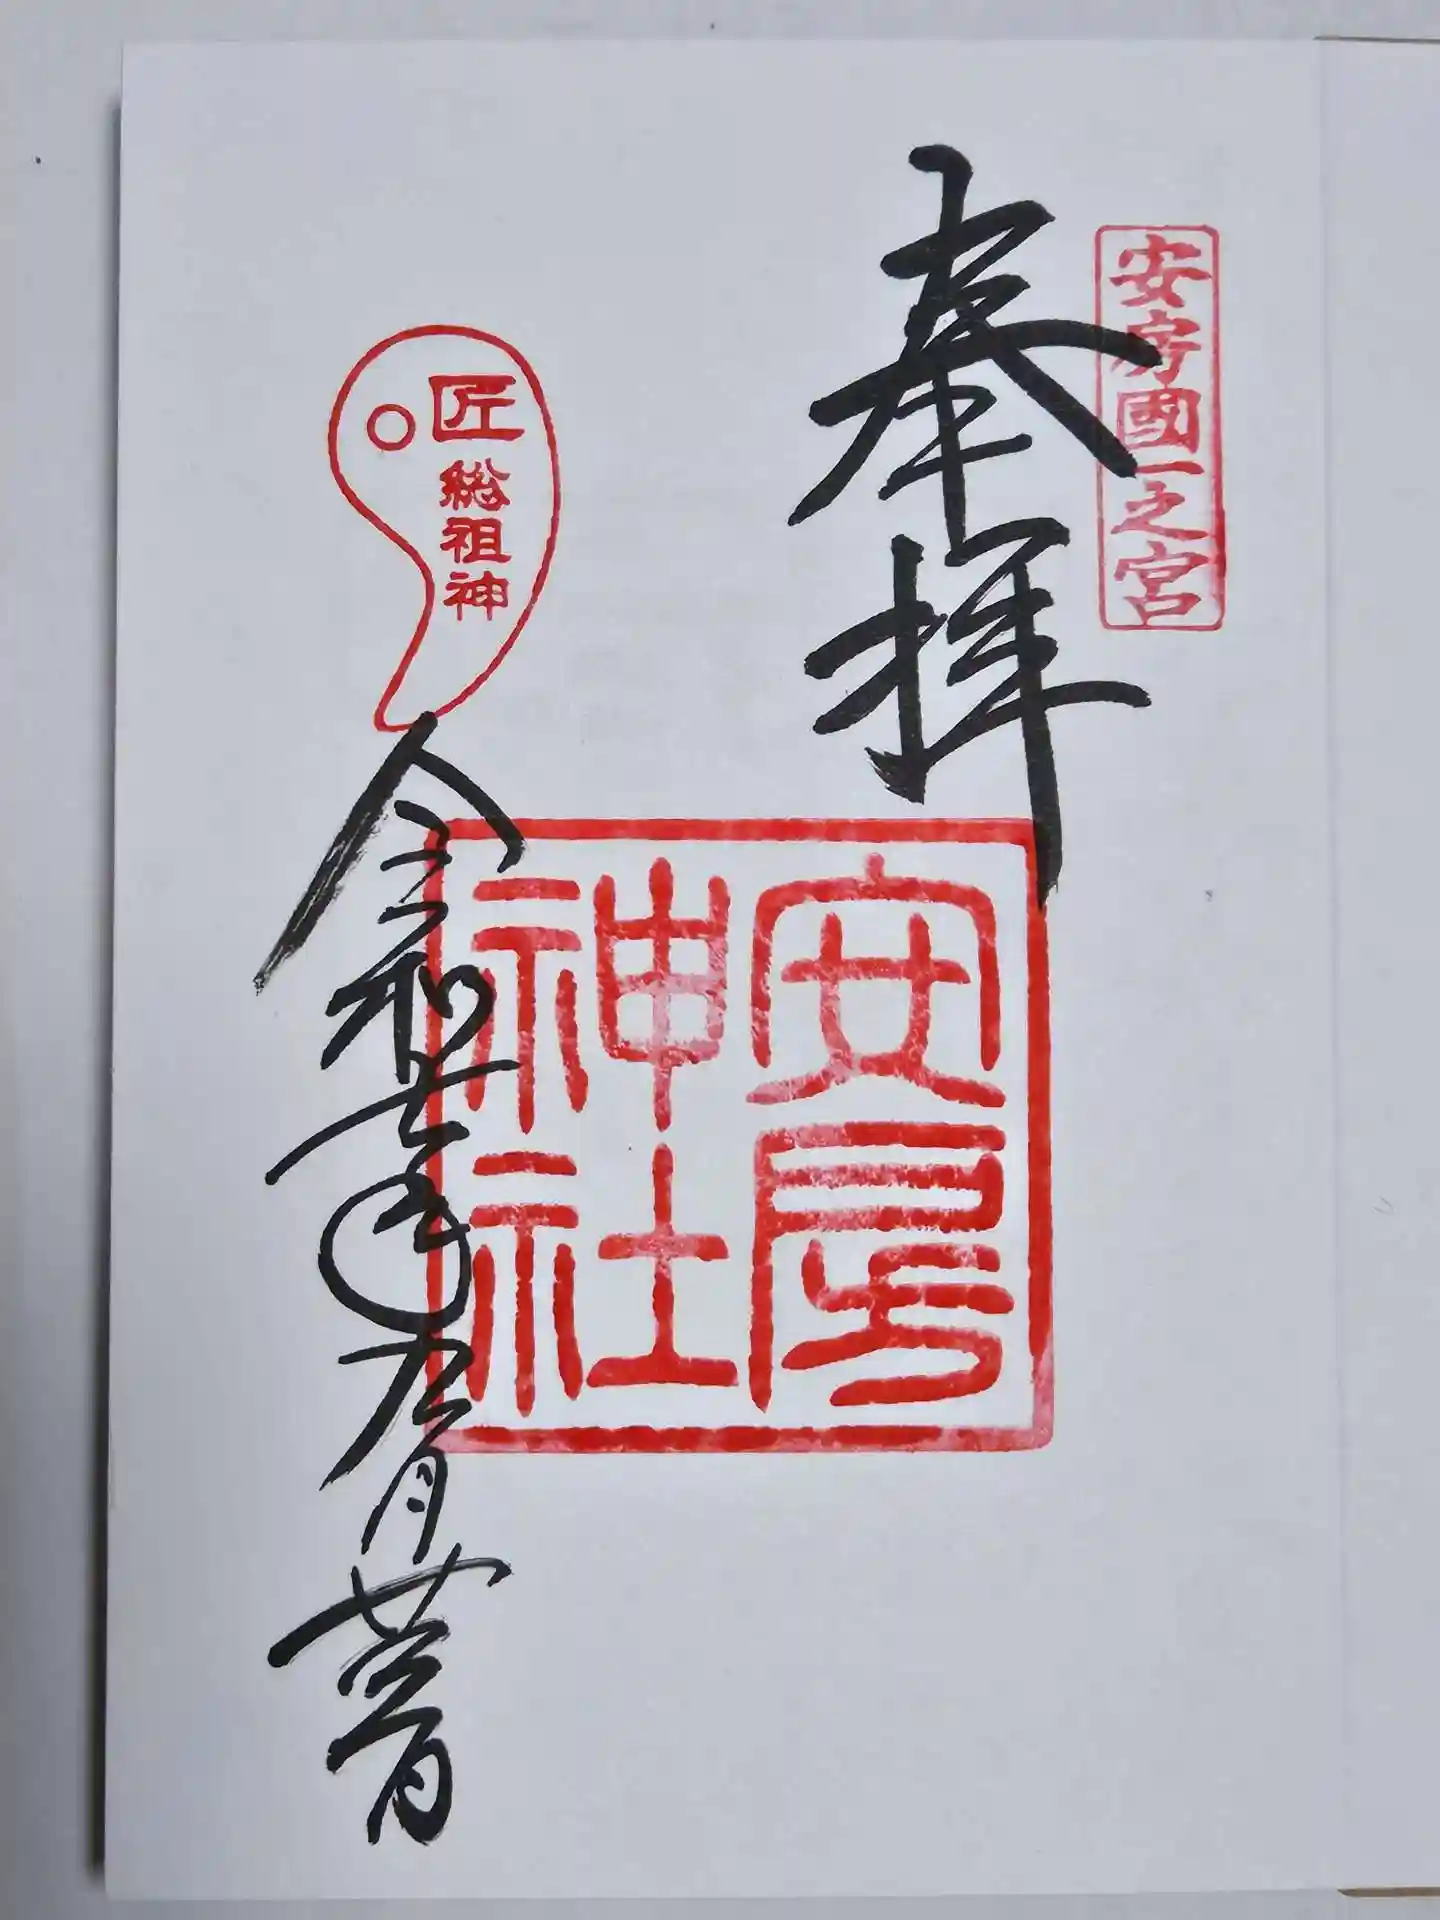 安房國一之宮
奉拝
安房
神社
匠
総祖神
令和七年九月廿日